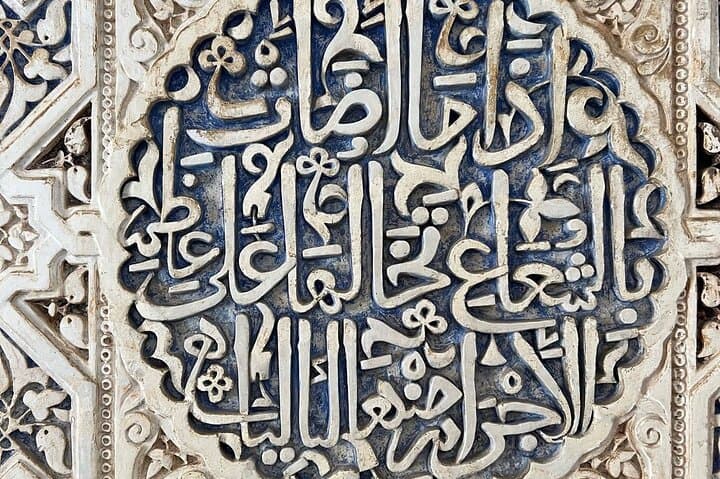 إذا ما أضاءت
بالشعاع تخالها على عظم
الأجرام منها لآليا